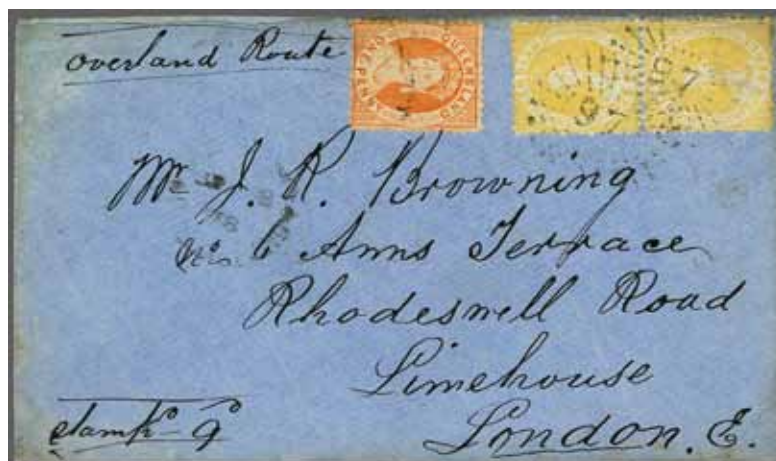 Overland Route
QUEENSLAND
ONE PENNY
97
97
Mr. J. R. Browning
No. 6 Anns Terrace
Rhodeswell Road
Limehouse
London. E.
stamps 9d